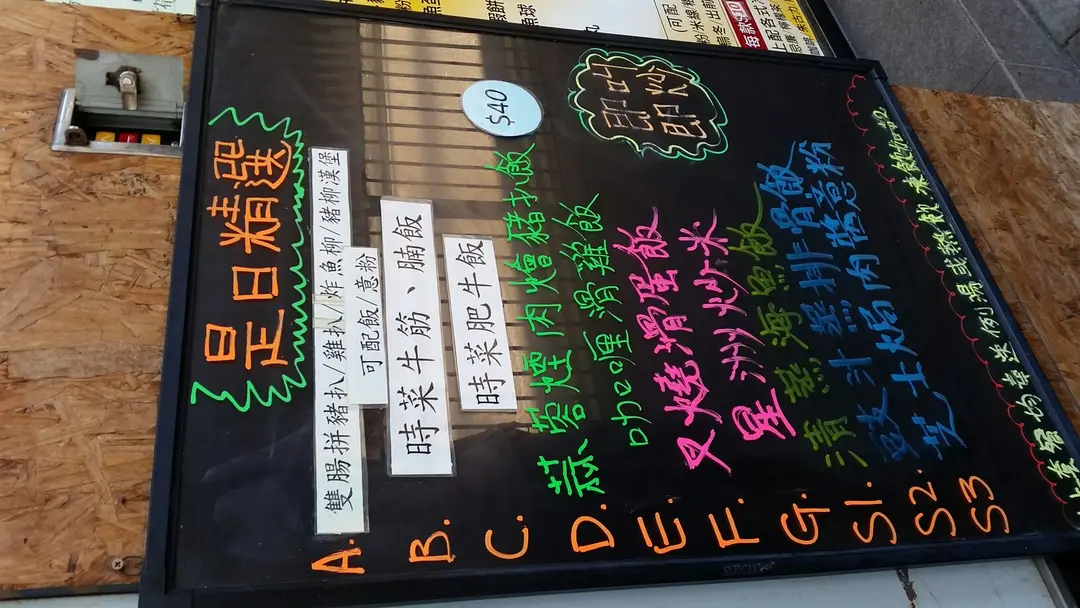 是日精選
A. 雙腸拼豬扒/雞扒/炸魚柳/豬柳漢堡
可配飯/意粉
B. 時菜牛筋、腩飯
C. 時菜肥牛飯
$40
D. 蒜蓉煙肉燴豬扒飯
E. 咖喱滑雞飯
F. 叉燒滑蛋飯
即叫
即炒
G. 星洲炒米
S1. 清蒸海魚飯
S2. 豉汁蒸排骨飯
S3. 芝士焗肉醬意粉
餐均奉送例湯或熱飲 凍飲加$2